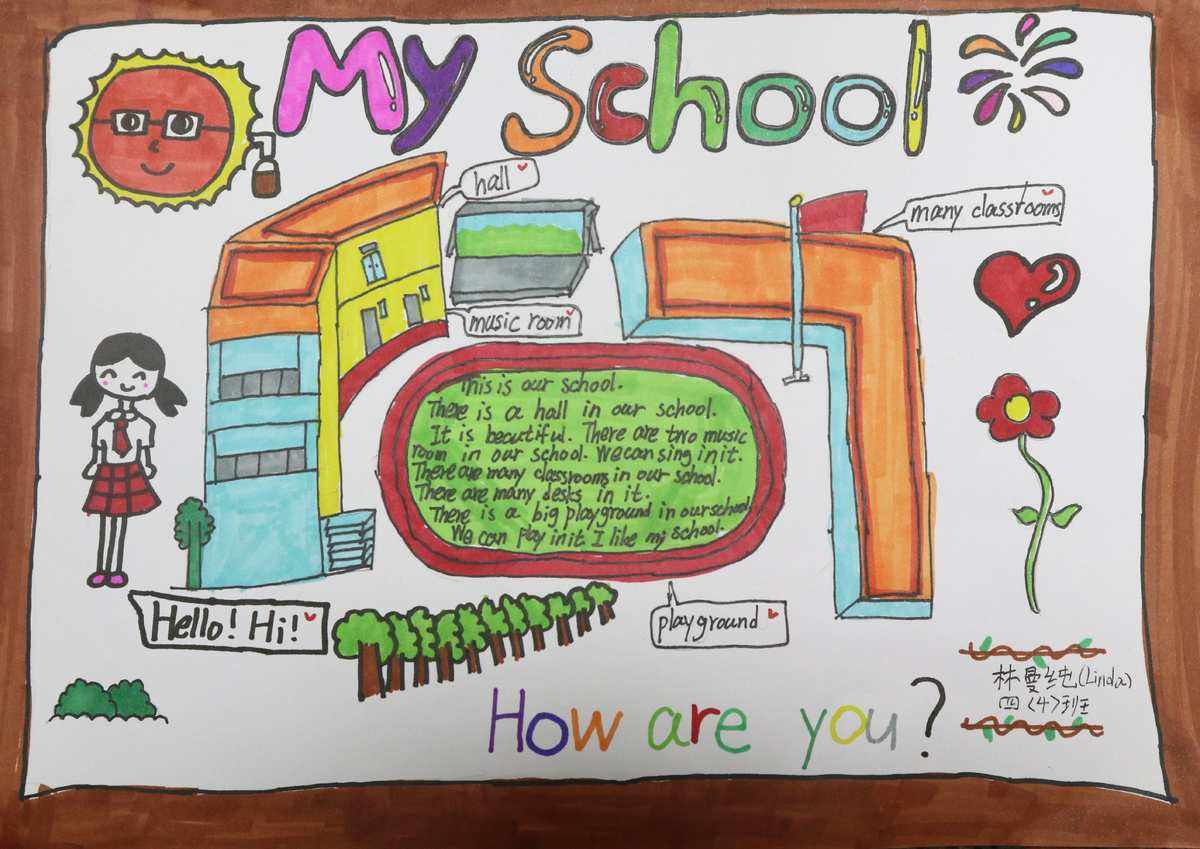 My School
hall
many classrooms
music room
This is our school.
There is a hall in our school.
It is beautiful. There are two music
room in our school. We can sing in it.
There are many classrooms in our school.
There are many desks in it.
There is a big playground in our school
We can play in it. I like my school.
Hello! Hi!
playground
How are you?
林曼纯(Linda)
四〈4〉班